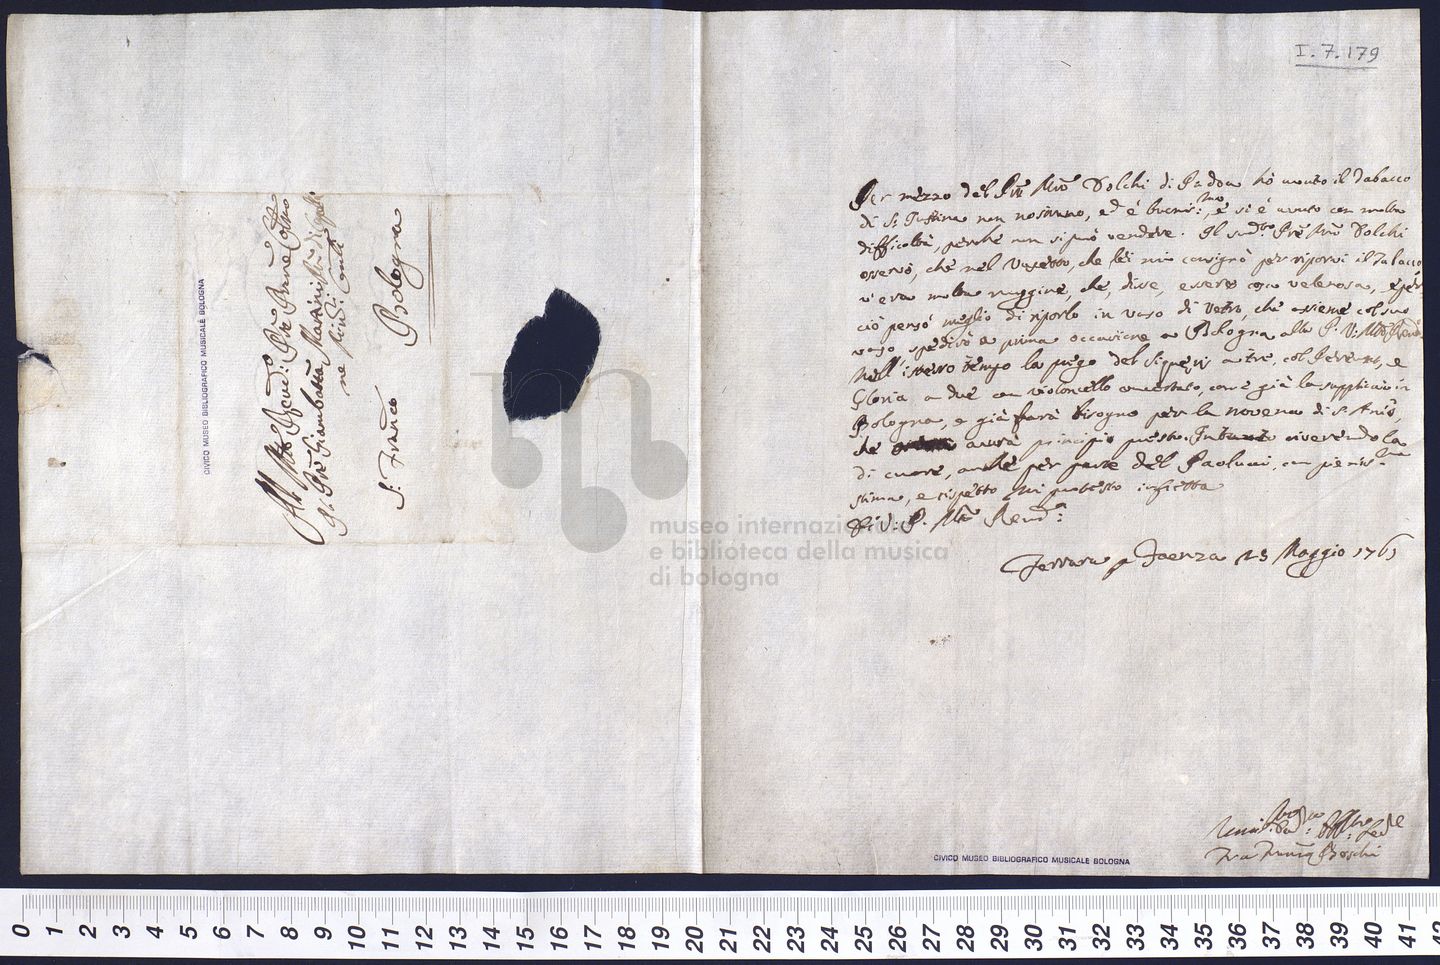 I.7.179
Per mezzo del Prē Mrō Dolchi di Padoa hò avuto il Tabacco
di S. Giustina non nostrano, ed è buonis:mo, e si è avuto con molta
difficoltà, perchè non si può vendere. Il sud:to Prē Mrō Dolchi
osservò, che nel Vasetto, che lei mi consignò per riporvi il Tabacco
v'era molta ruggine, che, disse, essere cosa velenosa, e per
ciò pensò meglio di riporlo in vaso di Vetro, che assieme col suo
vaso spedirò a prima occasione a Bologna alla P. V. M.
Nell'istesso tempo la prego del Siqueris a tre, col, e
Gloria a due con violoncello concertato, com'è già la supplicai in
Bologna, e già farà bisogno per la novena di S. Antō,
che avrà principio presto. Intanto riverendola
di cuore, anche per parte del Paolucci, con pienis:ma
stima, e rispetto mi protesto in fretta
Di V: P. M. Rend:a
Ferrara p Faenza 23 Maggio 1761
Fra Boschi
Al M. Revdo: Prē Prōne
Il Prē Giambatta Martini
ne Min: Conti
S: Franco
Bologna
CIVICO MUSEO BIBLIOGRAFICO MUSICALE BOLOGNA
CIVICO MUSEO BIBLIOGRAFICO MUSICALE BOLOGNA
museo internazionale
e biblioteca della musica
di bologna
0 1 2 3 4 5 6 7 8 9 10 11 12 13 14 15 16 17 18 19 20 21 22 23 24 25 26 27 28 29 30 31 32 33 34 35 36 37 38 39 40 41 42